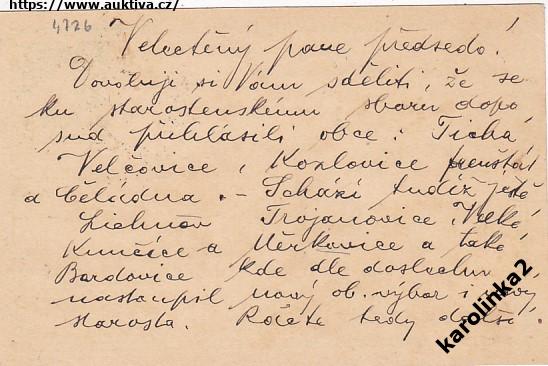 https://www.auktiva.cz/
4726
Velectěný pane předsedo!
Dovoluji si Vám sděliti, že se
ku starostenskému sboru dopo
sud přihlásili obce: Tichá
Velčovice, Kozlovice Frenštát
a Čeladna. - Schází tudíž ještě
Lichnov Trojanovice, Velké
Kunčice a Měrkovice a také
Bordovice kde dle doslechu
nastoupil nový ob. výbor i nový
starosta. Račte tedy další
karolinka2